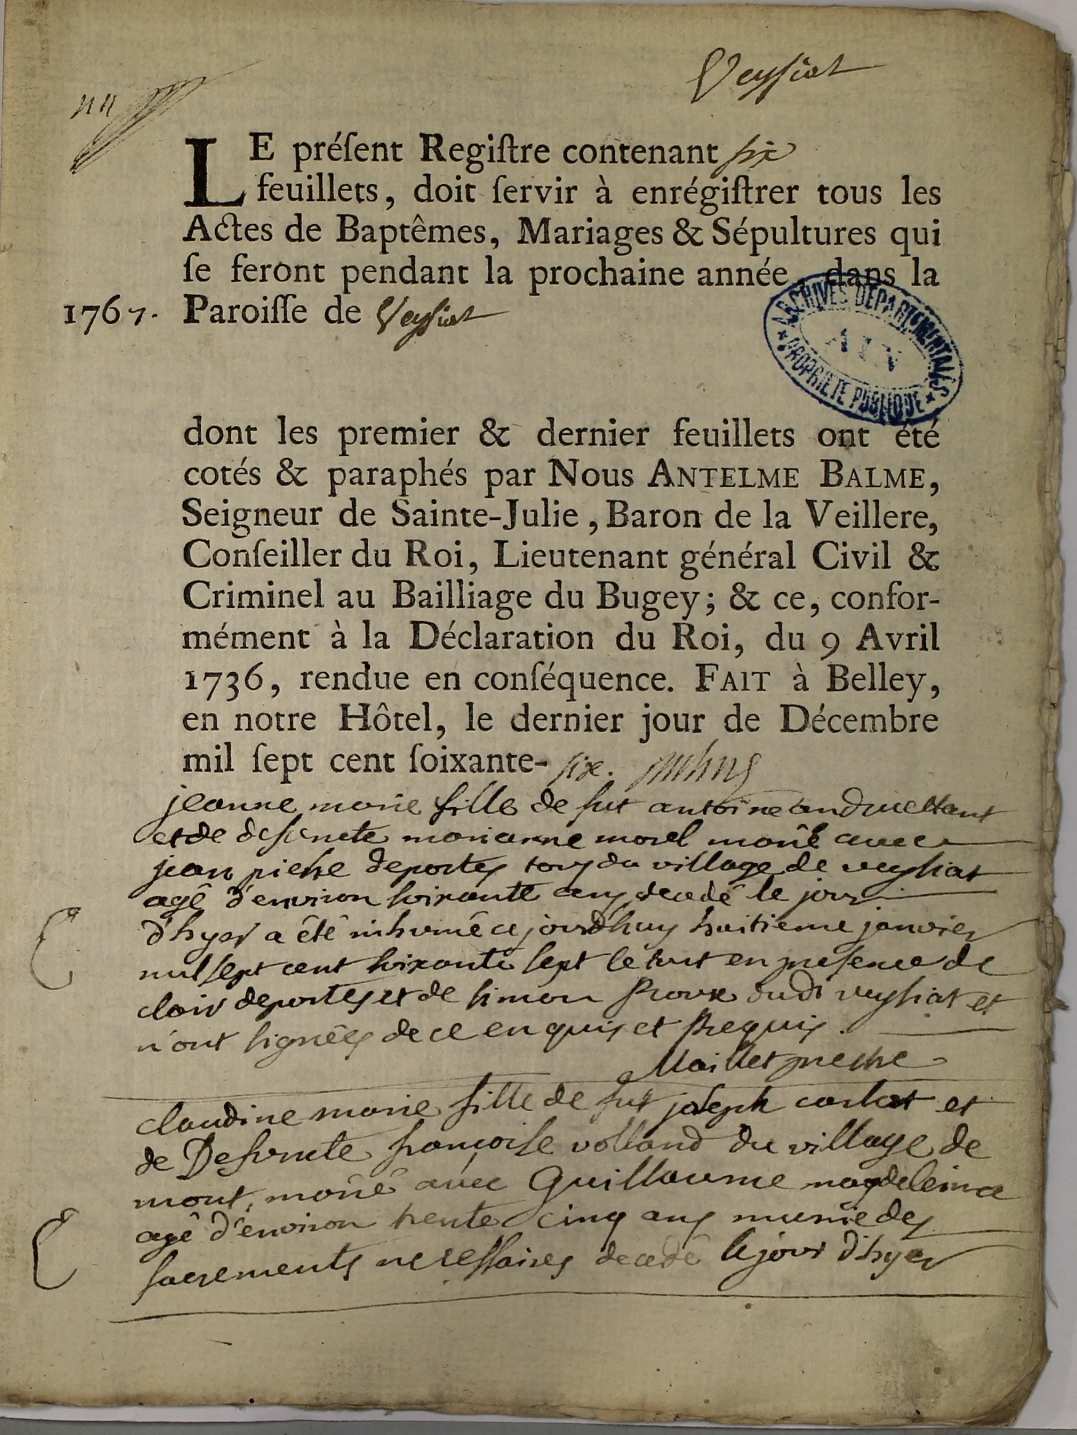 Veyſiat
LE préſent Regiſtre contenant ſix
feuillets, doit ſervir à enrégiſtrer tous les
Actes de Baptêmes, Mariages & Sépultures qui
ſe feront pendant la prochaine année, dans la
1767. Paroiſſe de Veyſiat
ARCHIVES DÉPARTEMENTALES
AIN
PROPRIÉTÉ PUBLIQUE
dont les premier & dernier feuillets ont été
cotés & paraphés par Nous ANTELME BALME,
Seigneur de Sainte-Julie, Baron de la Veillere,
Conſeiller du Roi, Lieutenant général Civil &
Criminel au Bailliage du Bugey; & ce, confor-
mément à la Déclaration du Roi, du 9 Avril
1736, rendue en conſéquence. FAIT à Belley,
en notre Hôtel, le dernier jour de Décembre
mil ſept cent ſoixante-ſix.
jeanne marie fille de fut antoine
et de defuncte marianne morel mariê avec
jean pierre deportes tous du village de veyſiat
agê d'environ soixante ans decedê le jour
d'hyer a êtê inhumê ce jourdhuy huitieme janvier
mil sept cent soixante sept le tout en presence de
clair deportes et de simon dudt veyſiat et
n'ont signêes de ce enquis et requis.
Maillet prestre
claudine marie fille de fut joseph carlat et
de Defuncte françoise volland du village de
mont, mariê avec Guillaume
agê d'environ trente cinq ans munie des
sacrements necessaires decedê le jour d'hyer